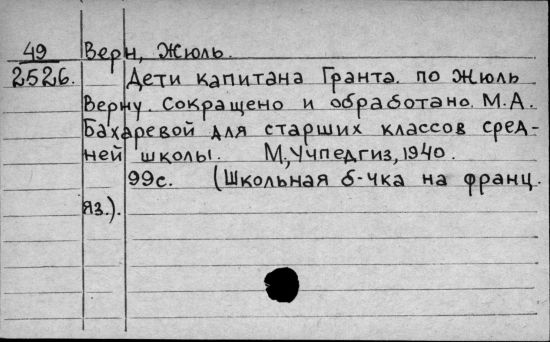 49 Верн, Жюль.
2526. Дети капитана Гранта. по Жюль
Верну. Сокращено и обработано. М.А.
Бахаревой для старших классов сред-
ней школы. М., Учпедгиз, 1940.
99с. (Школьная б-чка на франц.
яз.).